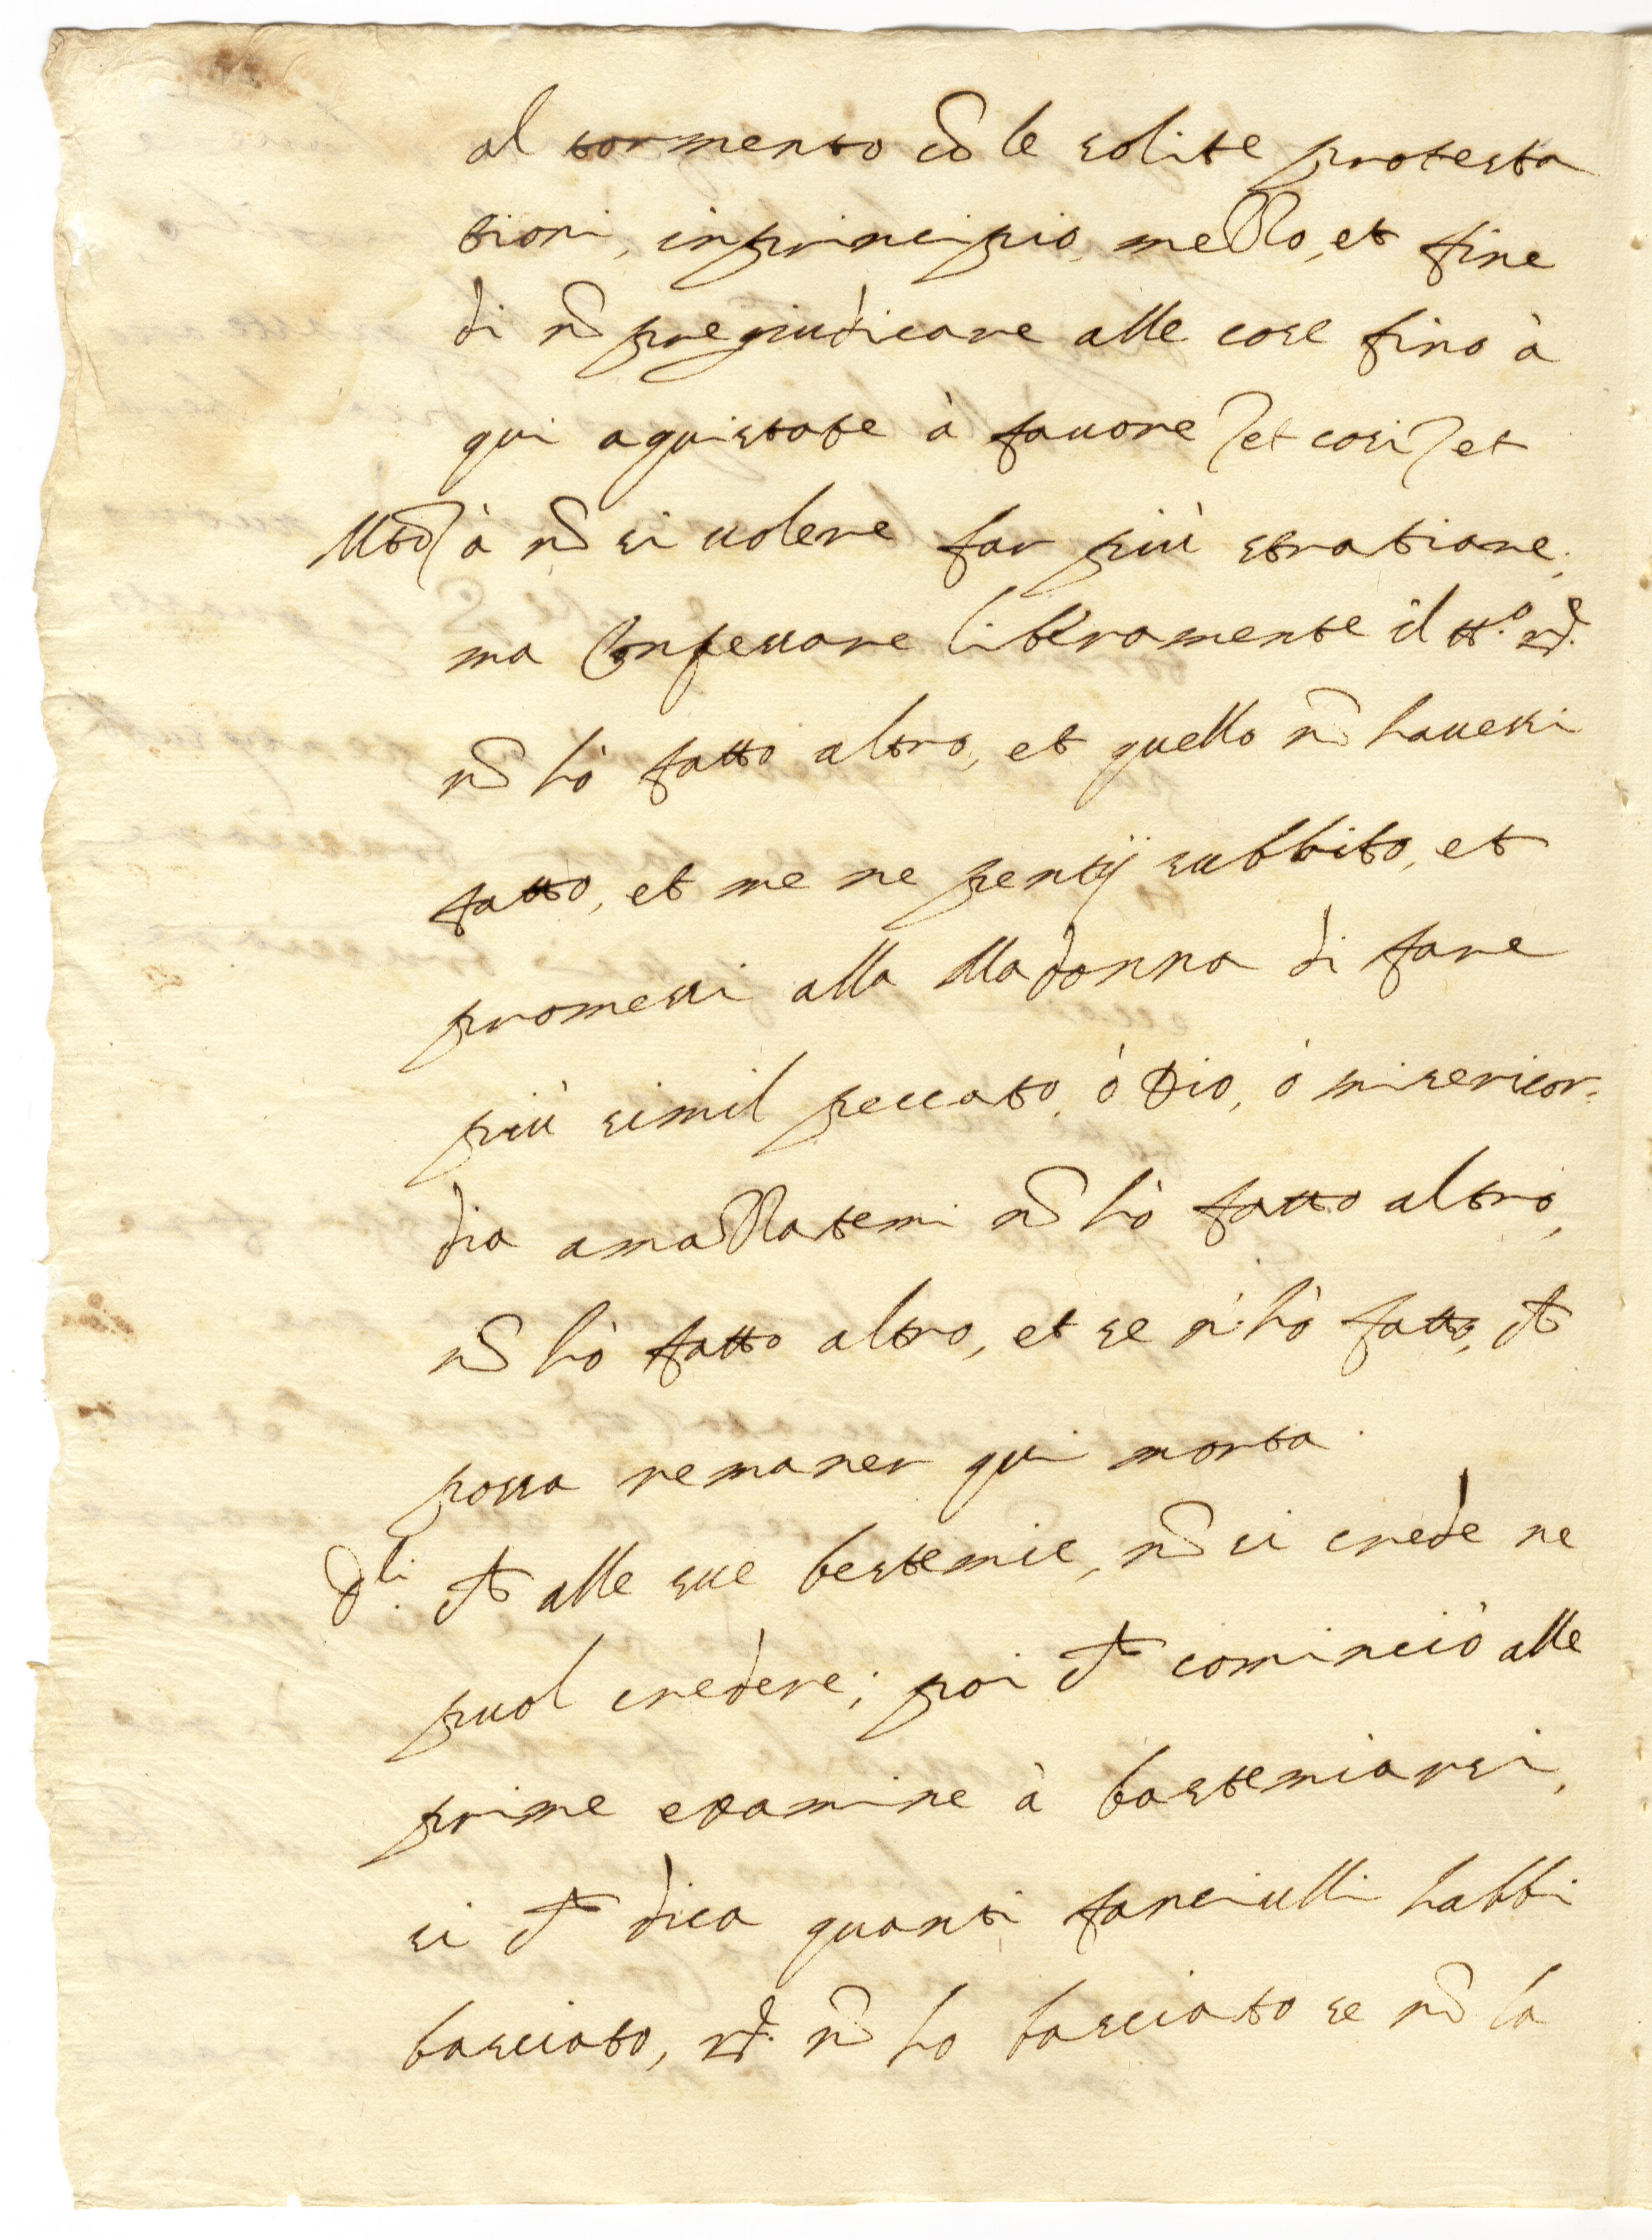 al tormento cõ le solite protesta
tioni, in principio, mezzo, et fine
di nõ pregiudicare alle cose fino à
qui aquistate à fauore et cosi et
à nõ si uolere far più stratiare,
ma confessare liberamente il tt.º rd.
nõ hò fatto altro, et quello nõ hauessi
fatto, et me ne pentij subbito, et
promessi alla Madonna di fare
più simil peccato, ò Dio, ò misericor-
dia amazzatemi nõ hò fatto altro,
nõ hò fatto altro, et se n'hò fatto, ch
possa remaner qui morta.
D.li ch alle sue bestemie, nõ si crede ne
puol credere; poi ch cominciò alle
prime examine à bastemiarsi,
si ch dica quanti fanciulli habbi
basciato, rd. nõ ho basciato se nõ la